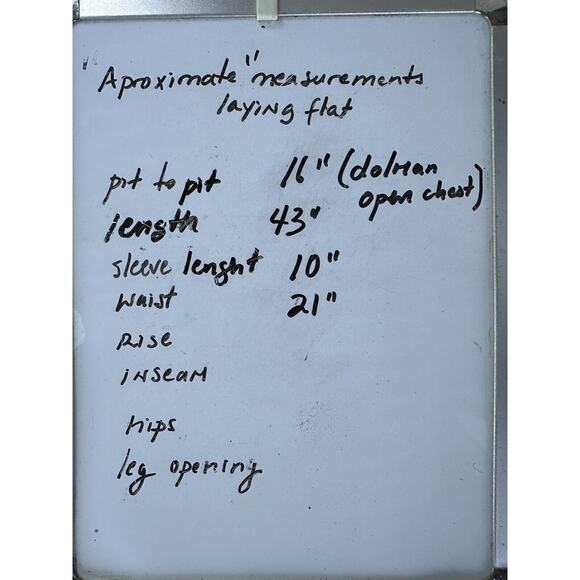 "Aproximate" measurements
laying flat
pit to pit 16" (dolman
open chest)
length 43"
sleeve lenght 10"
waist 21"
Rise
inseam
hips
leg opening